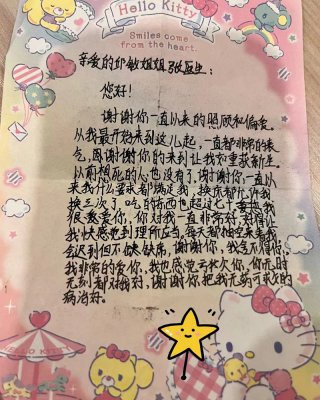 Hello Kitty
Smiles come
from the heart.
亲爱的邱敏姐姐张医生:
您好!
谢谢你一直以来的照顾和偏爱。
从我最开始来到这儿起,一直都非常的
气,因谢谢你的来到让我如重获新生
以前想死的心也没有了,谢谢你,一直以
来我什么要求都满足我,换床都允许我
换三次了,吃的东西也超过七十
我很爱你,你对我一直非常好,好得让
我快感觉到理所应当,每天都抽空来看我
会迟到但不会缺席,谢谢你,我舍不得你,
我非常的爱你,我也感觉亏欠你,你无时
无刻都对我好,谢谢你把我无药可救的
病治好。
HELLO KITTY